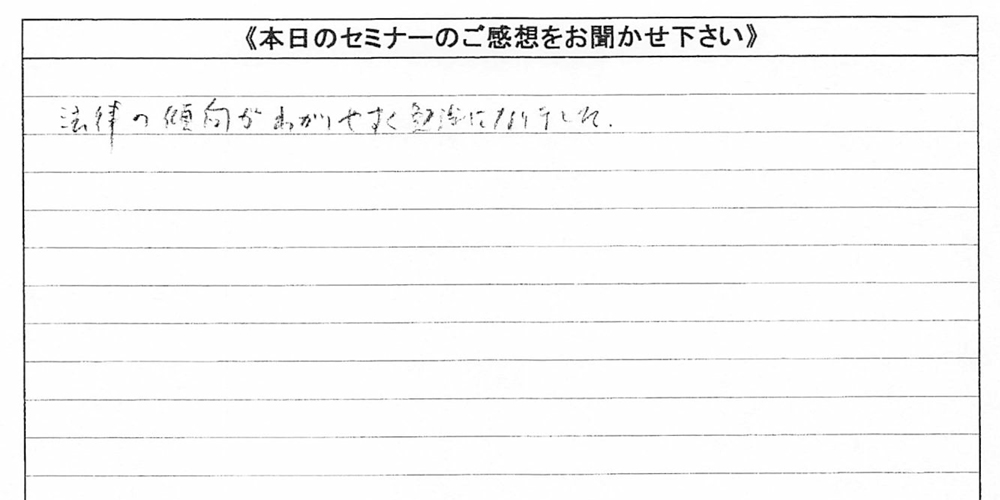 《本日のセミナーのご感想をお聞かせ下さい》
法律の傾向がわかりやすく勉強になりました.